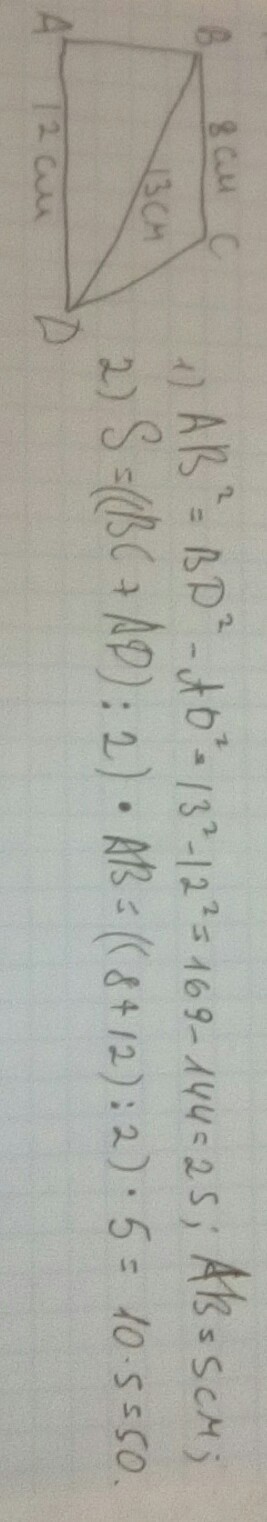 B 8 см C
13 см
A 12 см D
1) AB² = BD² - AD² = 13² - 12² = 169 - 144 = 25; AB = 5 см;
2) S = ((BC + AD) : 2) · AB = ((8 + 12) : 2) · 5 = 10 · 5 = 50.